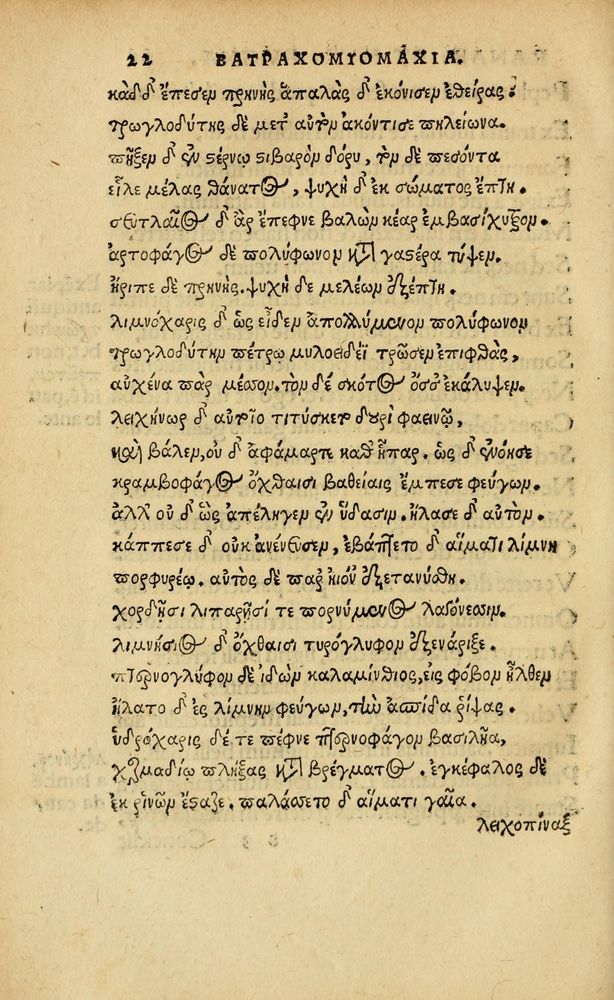 22 ΒΑΤΡΑΧΟΜΥΟΜΑΧΙΑ.
κὰδ δ' ἔπεσεν πρηνὴς ἁπαλὰς δ' ἐκόνισεν ἐθείρας.
τρωγλοδύτης δὲ μετ' αὐτὸν ἀκόντισε πηλείωνα.
πῆξεν δ' ἐν στέρνῳ στιβαρὸν δόρυ, τὸν δὲ πεσόντα
εἷλε μέλας θάνατος, ψυχὴ δ' ἐκ σώματος ἔπτη.
σευτλαῖος δ' ἂρ ἔπεφνε βαλὼν κέαρ ἐμβασίχυτρον.
ἀρτοφάγος δὲ πολύφωνον κατὰ γαστέρα τύψεν.
ἤριπε δὲ πρηνὴς. ψυχὴ δὲ μελέων ἐξέπτη.
λιμνόχαρις δ' ὡς εἶδεν ἀπολλύμενον πολύφωνον
τρωγλοδύτην πέτρῳ μυλοειδέϊ τρῶσεν ἐπιφθὰς,
αὐχένα παρ μέσσον. τὸν δὲ σκότος ὄσσ' ἐκάλυψεν.
λειχήνωρ δ' αὐτοῖο τιτύσκετο δουρὶ φαεινῷ,
καὶ βάλεν, οὐ δ' ἀφάμαρτε καθ' ἧπαρ. ὡς δ' ἐνόησε
κραμβοφάγος ὄχθαισι βαθείαις ἔμπεσε φεύγων.
ἀλλ' οὐ δ' ὣς ἀπέληγεν ἐν ὕδασιν. ἤλασε δ' αὐτὸν.
κάππεσε δ' οὐκ ἀνένευσεν, ἐβάπτετο δ' αἵματι λίμνη
πορφυρέῳ. αὐτὸς δὲ παρ' ἠϊόν' ἐξετανύσθη.
χορδῇσι λιπαρῇσί τε πορνύμενος λαγόνεσσιν.
λιμνήσιος δ' ὄχθαισι τυρόγλυφον ἐξενάριξε.
πτερνογλύφον δὲ ἰδὼν καλαμίνθιος, εἰς φόβον ἦλθεν
ἥλατο δ' ἐς λίμνην φεύγων, τὴν ἀσπίδα ῥίψας.
ὑδρόχαρις δέ τε πέφνε πτερνοφάγον βασιλῆα,
χερμαδίῳ πλήξας κατὰ βρέγματος. ἐγκέφαλος δὲ
ἐκ ῥινῶν ἔσταζε. παλάσσετο δ' αἵματι γαῖα.
λειχοπίναξ